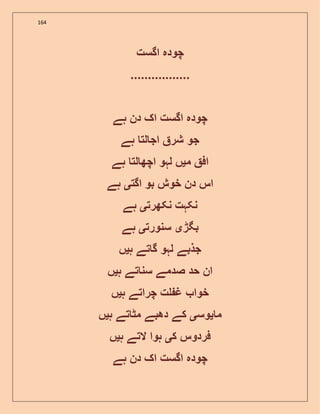 164
چودہ اگست
.................
چودہ اگست اک دن ہے
جو شرق اجالتا ہے
افق میں لہو اچھالتا ہے
اس دن خوش بو اگتی ہے
نکہت نکھرتی ہے
بگڑی سنورتی ہے
جذبے لہو گاتے ہیں
ان حد صدمے سناتے ہیں
خواب غفلت چراتے ہیں
مایوسی کے دھبے مٹاتے ہیں
فردوس کی ہوا لاتے ہیں
چودہ اگست اک دن ہے